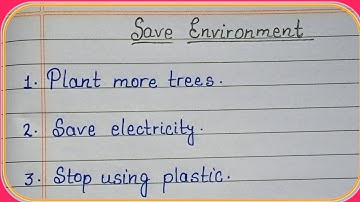 Save Environment
1. Plant more trees.
2. Save electricity.
3. Stop using plastic.